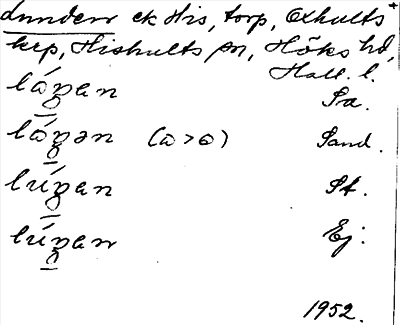 Lunden ek His, torp, Oxhults+
krp, Hishults sn, Höks hd,
Hall. l.
lógan Sa.
lógən (a > o) Sand.
lúgan St.
lúgan Ej:
1952.